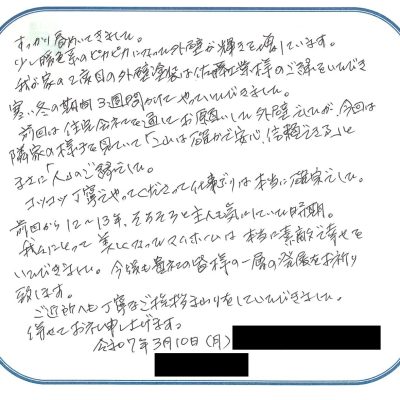 すっかり春めいてきました。
少し暖色系のピカピカになった外壁が輝きを増しています。
我が家の2度目の外壁塗装は佐藤社長様のご縁をいただき
寒い冬の期間3週間かけてやっていただきました。
前回は住宅会社を通してお願いした外壁でしたが、今回は
隣家の様子を見ていて「ここは確かで安心、信頼できる」と
まさに「人」のご縁でした。
コツコツ丁寧にやってくださった仕事ぶりは本当に確実でした。
前回から12〜13年、そろそろと主人も気にしていた時期。
私たちにとって美しくなったマイホームは本当に素敵で幸せを
いただきました。今後も貴社の皆様の一層の発展をお祈り
致します。
ご近所へも丁寧なご挨拶まわりをしていただきました。
併せてお礼申し上げます。
令和7年3月10日(月)